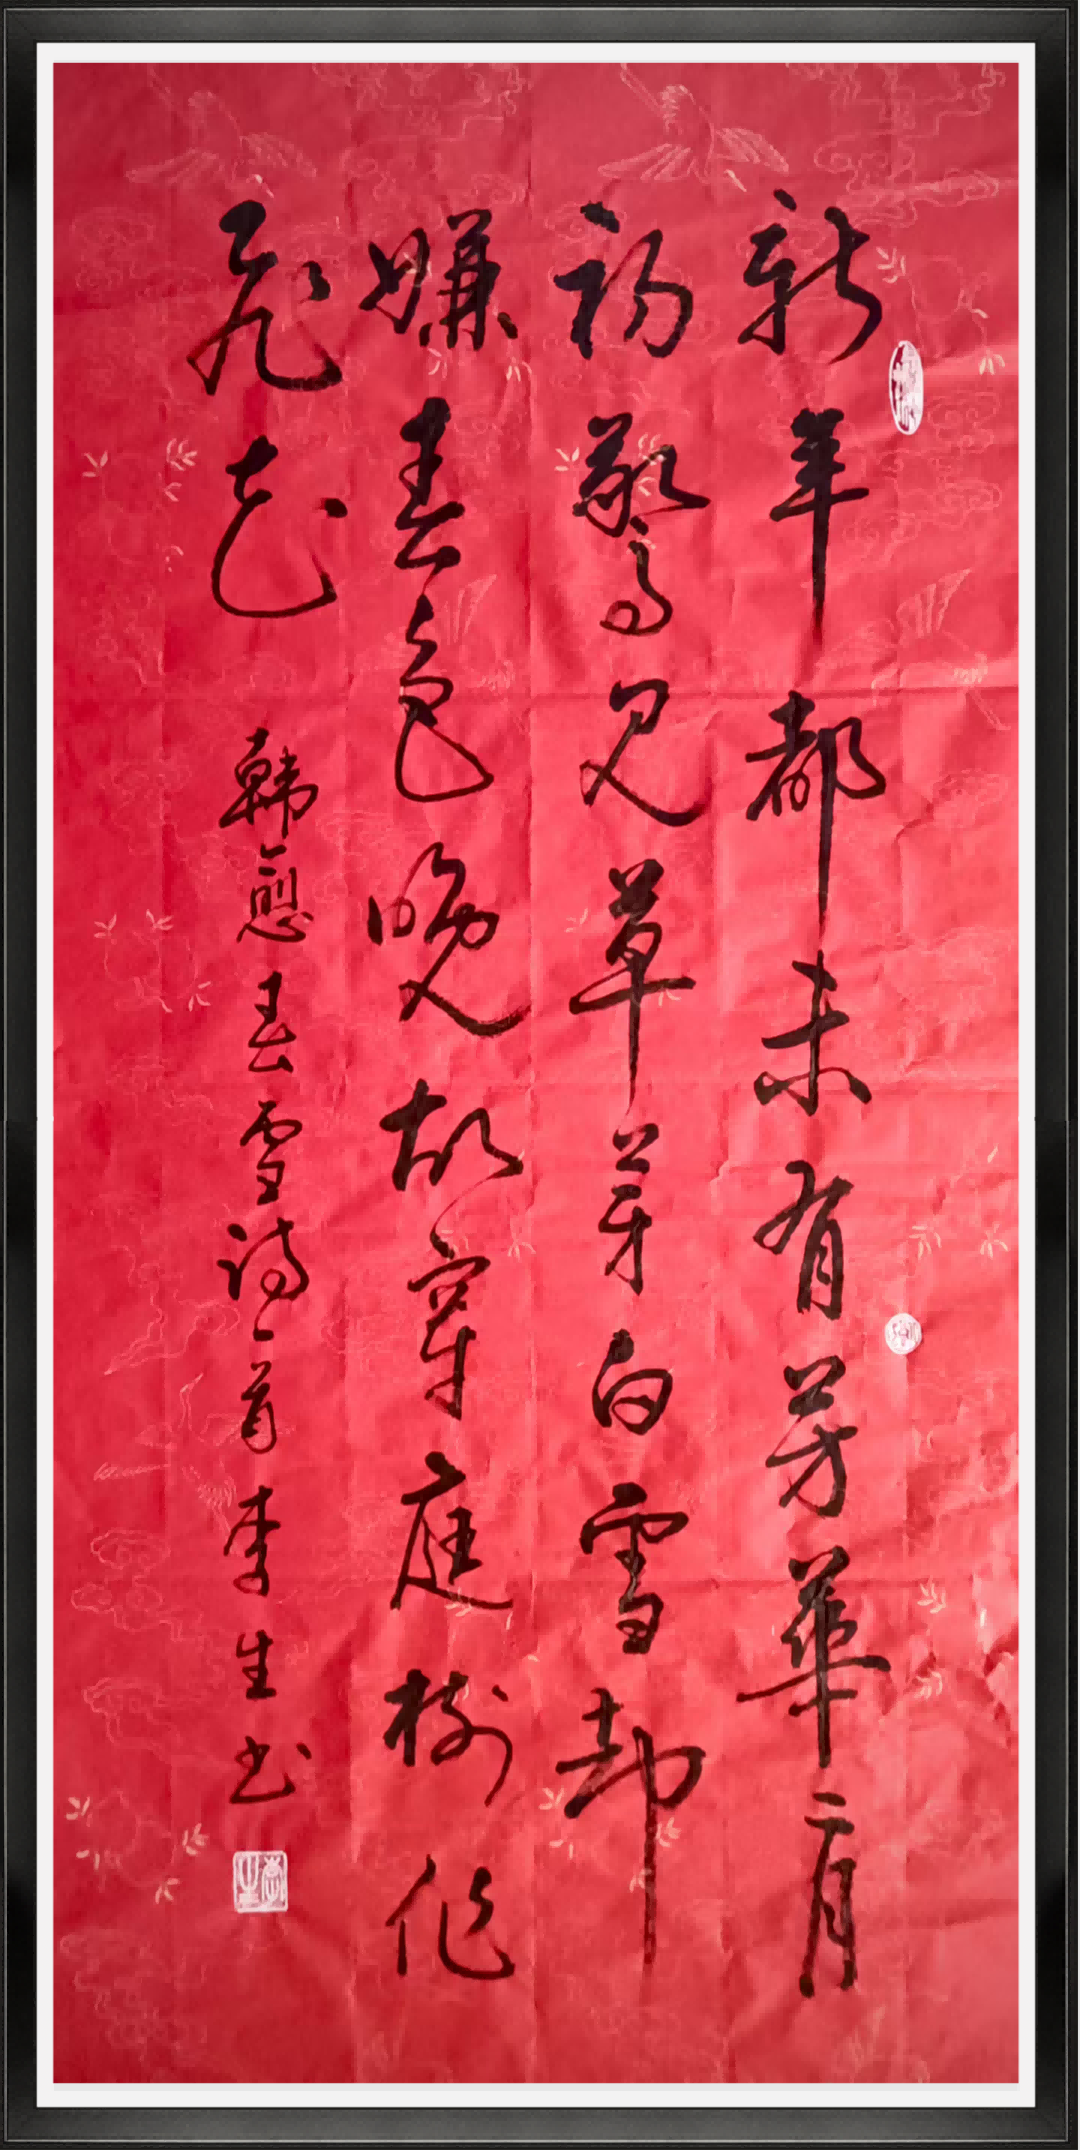 新年都未有芳華二月
初驚見草芽白雪却
嫌春色晚故穿庭樹作
飛花
韓愈春雪詩一首李生书
李生